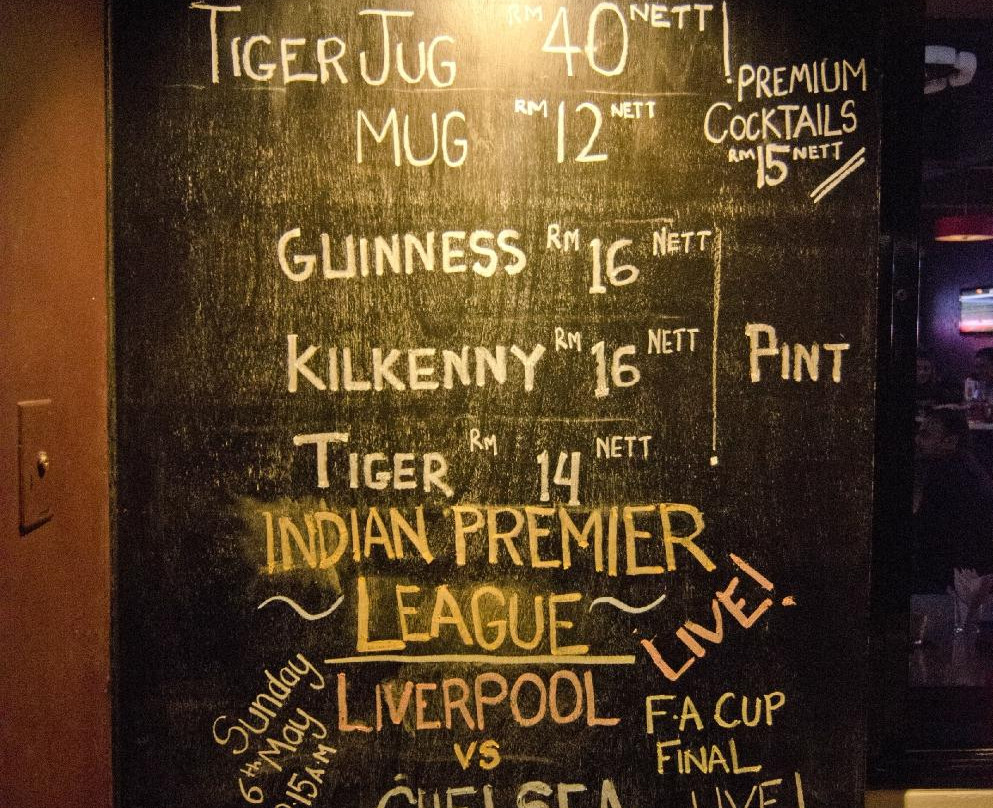 TIGER JUG RM 40 NETT!
MUG RM 12 NETT
PREMIUM
COCKTAILS
RM 15 NETT
GUINNESS RM 16 NETT
KILKENNY RM 16 NETT
PINT
TIGER RM 14 NETT
INDIAN PREMIER
LEAGUE
LIVE!
LIVERPOOL
VS
CHELSEA
F.A CUP
FINAL
LIVE!
Sunday
6TH May
15 A.M